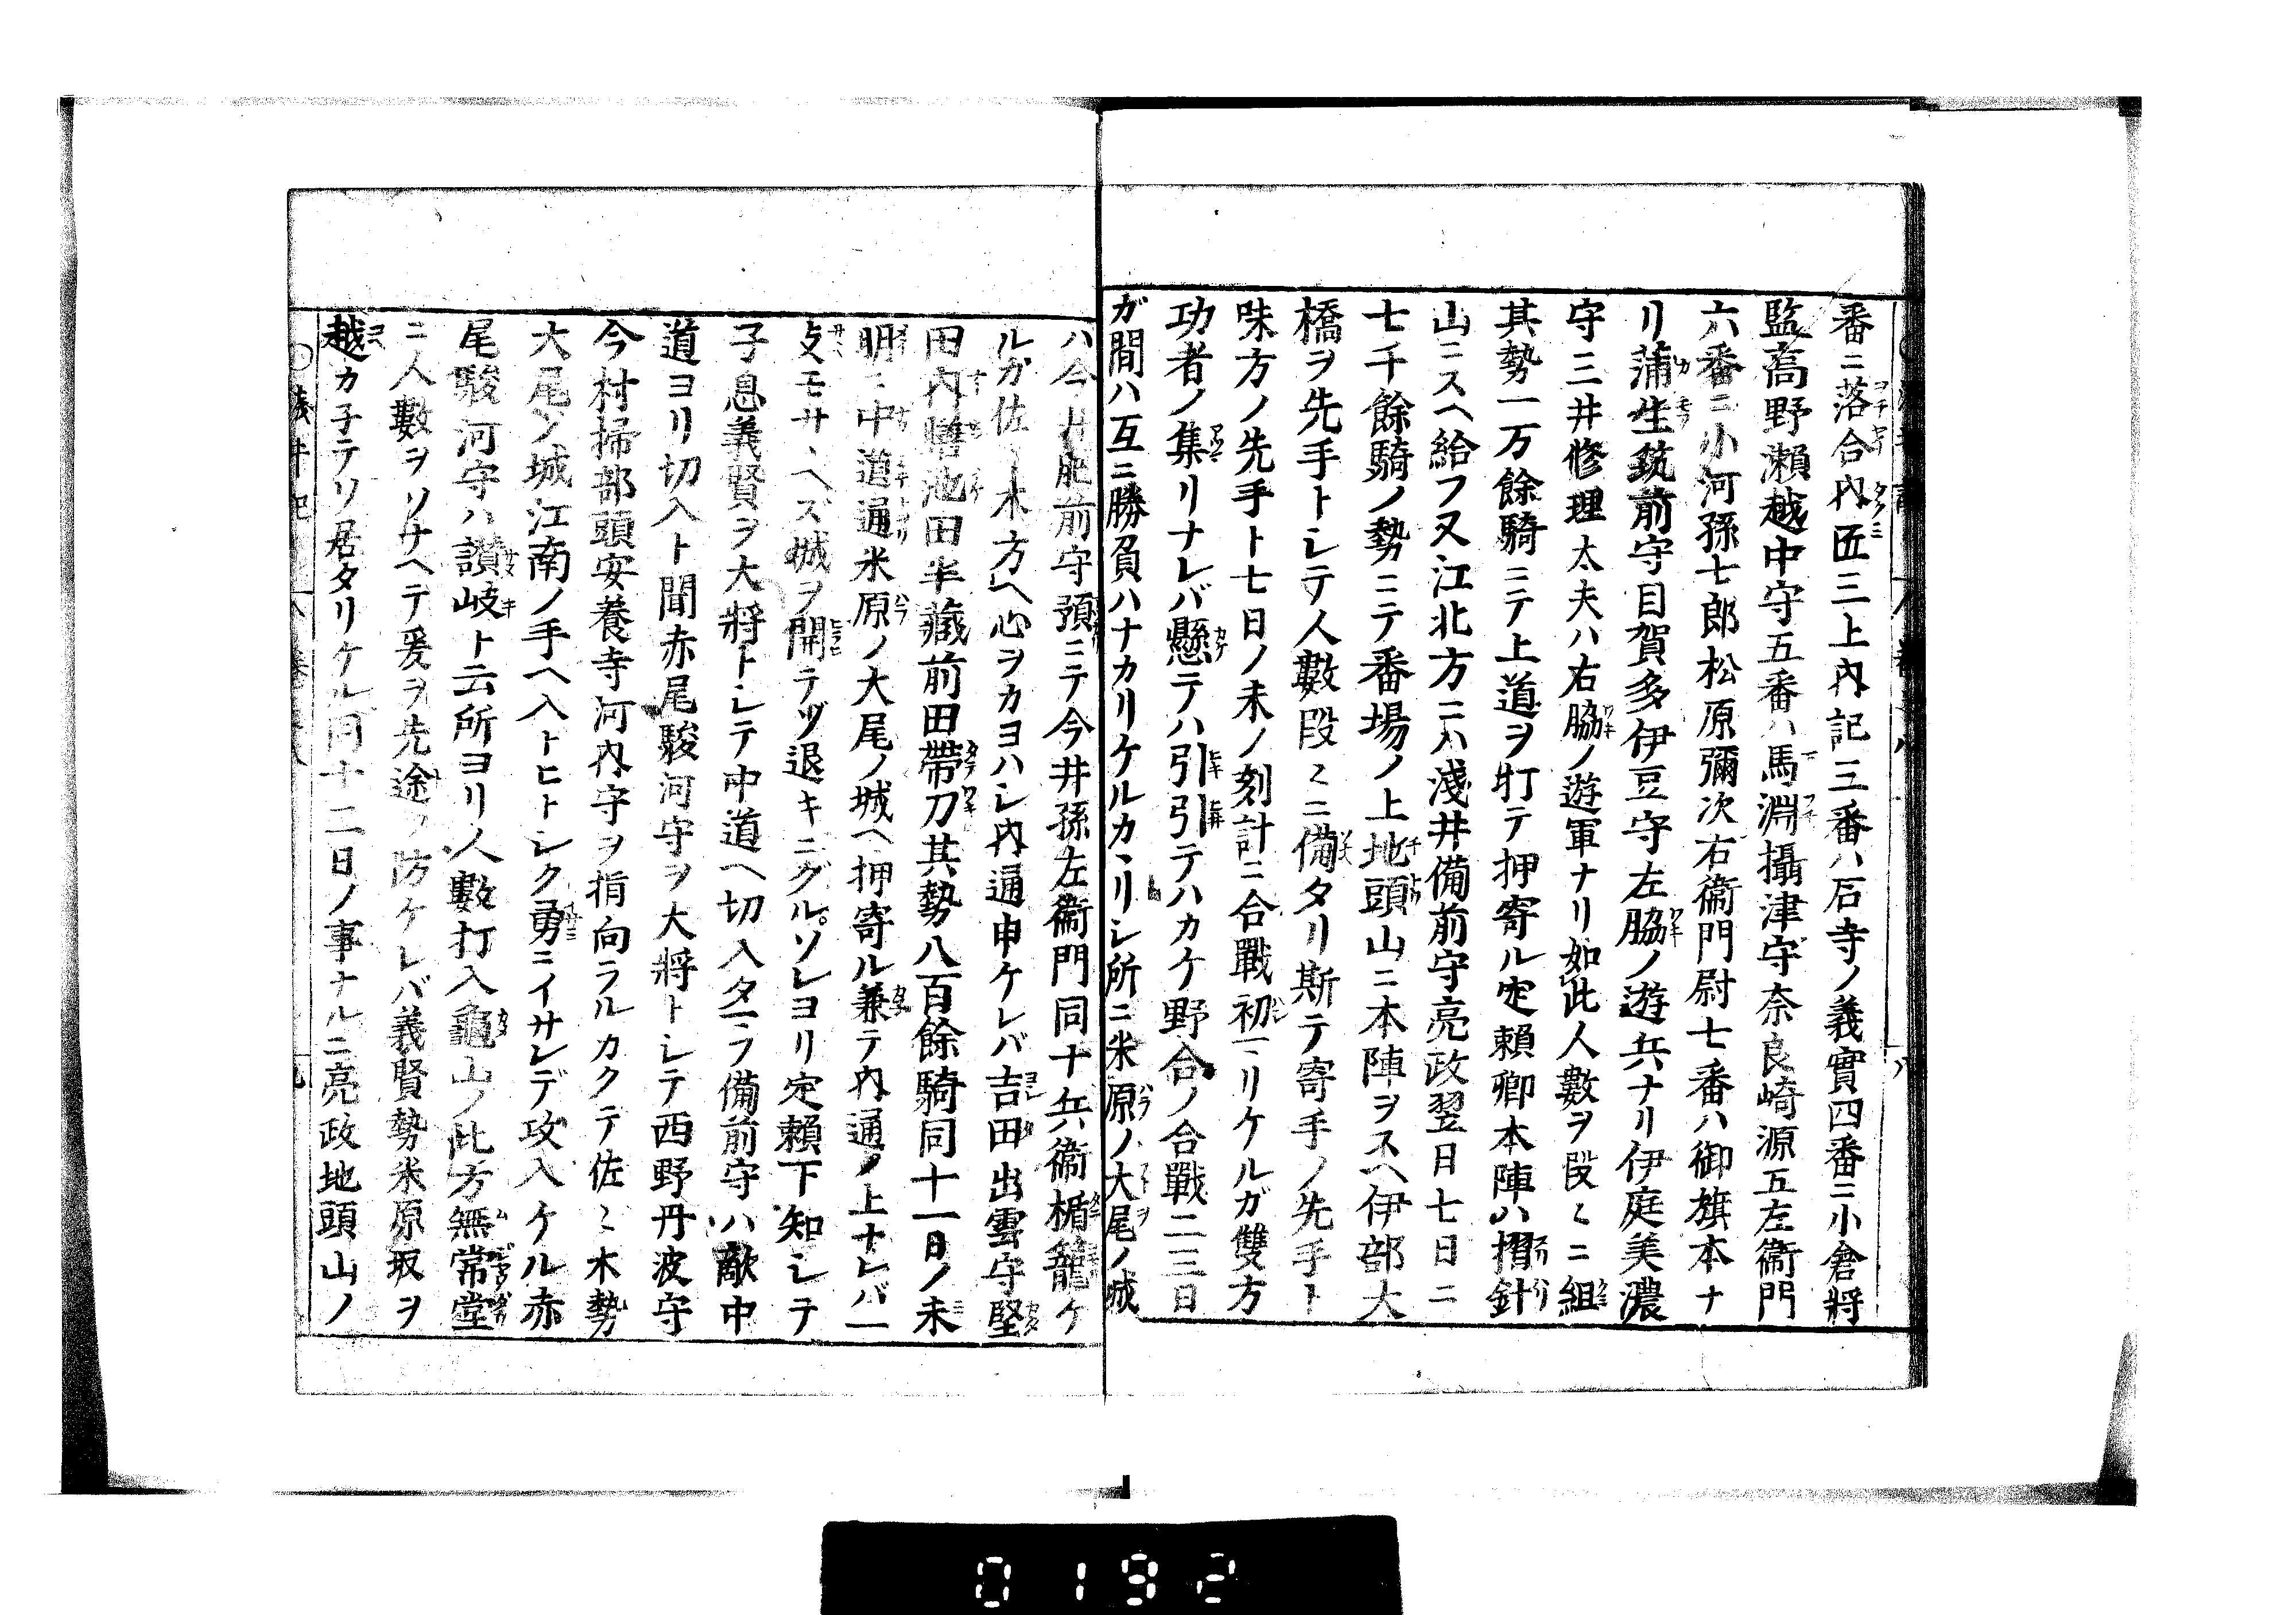 番ニ落合内匠三上内記三番ハ后寺ノ義實四番ニ小倉將
監高野瀬越中守五番ハ馬淵攝津守奈良崎源五左衞門
六番ニ小河孫七郎松原彌次右衞門尉七番ハ御旗本ナ
リ蒲生筑前守目賀多伊豆守左脇ノ遊兵ナリ伊庭美濃
守三井修理太夫ハ右脇ノ遊軍ナリ如此人數ヲ段〻ニ組
其勢一万餘騎ニテ上道ヲ打テ押寄ル定賴卿本陣ハ摺針
山ニスヘ給フ又江北方ニハ淺井備前守亮政翌日七日ニ
七千餘騎ノ勢ニテ番場ノ上地頭山ニ本陣ヲスヘ伊部大
橋ヲ先手トシテ人數段〻ニ備タリ斯テ寄手ノ先手ト
味方ノ先手ト七日ノ未ノ刻計ニ合戰初ニリケルガ雙方
功者ノ集リナレバ懸テハ引引テハカケ野合ノ合戰二三日
ガ間ハ互ニ勝負ハナカリケルカヽリシ所ニ米原ノ大尾ノ城
ハ今井肥前守預ニテ今井孫左衞門同十兵衞楯籠ケ
ルガ佐〻木方ヘ心ヲカヨハシ内通申ケレバ吉田出雲守堅
田内膳池田半藏前田帶刀其勢八百餘騎同十一日ノ未
明ニ中道通米原ノ大尾ノ城ヘ押寄ル兼テ内通ノ上ナレバ一
支モサヽヘズ城ヲ開テゾ退キニグル。ソレヨリ定賴下知シテ
子息義賢ヲ大將トシテ中道ヘ切入タラ備前守ハ敵中
道ヨリ切入ト聞赤尾駿河守ヲ大將トシテ西野丹波守
今村掃部頭安養寺河内守ヲ指向ラルカクテ佐〻木勢
大尾ノ城江南ノ手ヘ入トヒトシク勇ニイサレデ攻入ケル赤
尾駿河守ハ讃岐ト云所ヨリ人數打入龜山ノ此方無常堂
ニ人數ヲソナヘテ爰ヲ先途ノ防ケレバ義賢勢米原坂ヲ
越カ子テソ居タリケル同十二日ノ事ナルニ亮政地頭山ノ
0192